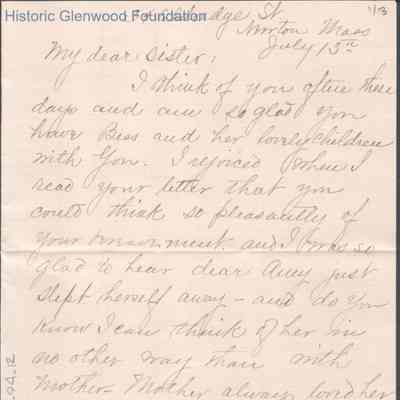 Historic Glenwood Foundation
1/3
St
Newton Mass
July 13th
My dear Sister,
I think of you often these
days and am so glad you
have Bess and her lovely children
with you. I rejoiced when I
read your letter that you
could think so pleasantly of
your and I was so
glad to hear dear Amy just
slept herself away - and do you
know I can think of her in
no other way than with
Mother - Mother always loved her
-04.12